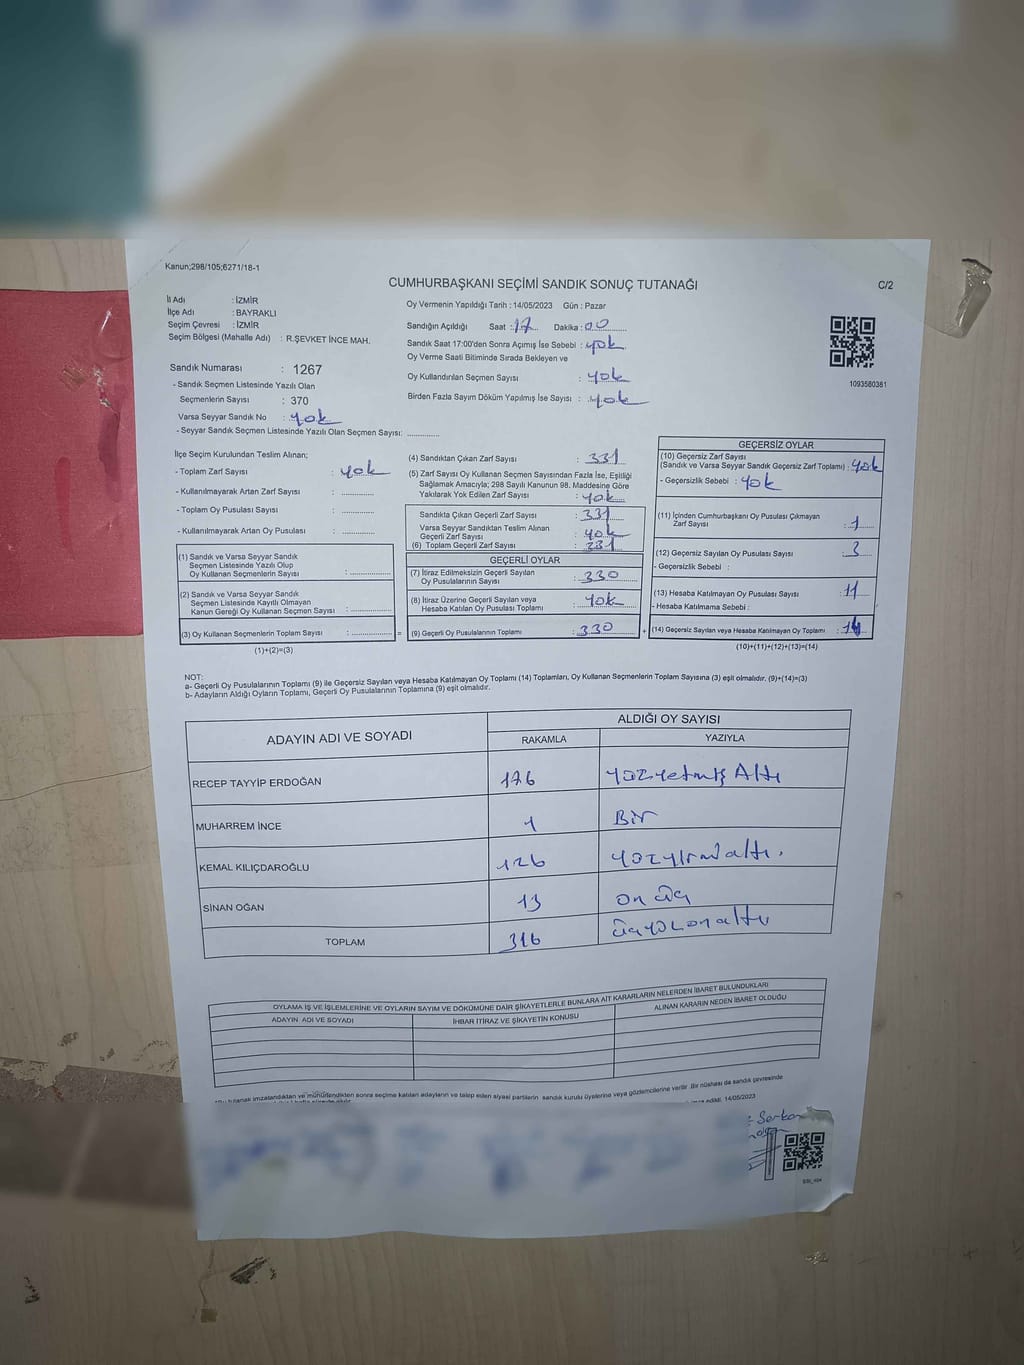 Kanun;298/105;6271/18-1
CUMHURBAŞKANI SEÇİMİ SANDIK SONUÇ TUTANAĞI
C/2
İl Adı : İZMİR
İlçe Adı : BAYRAKLI
Seçim Çevresi : İZMİR
Seçim Bölgesi (Mahalle Adı) : R.ŞEVKET İNCE MAH.
Sandık Numarası : 1267
- Sandık Seçmen Listesinde Yazılı Olan
Seçmenlerin Sayısı : 370
Varsa Seyyar Sandık No : yok
- Seyyar Sandık Seçmen Listesinde Yazılı Olan Seçmen Sayısı: ............
Oy Vermenin Yapıldığı Tarih : 14/05/2023 Gün : Pazar
Sandığın Açıldığı Saat : 17 Dakika : 00
Sandık Saat 17:00'den Sonra Açımış İse Sebebi : yok
Oy Verme Saati Bitiminde Sırada Bekleyen ve
Oy Kullandırılan Seçmen Sayısı : yok
Birden Fazla Sayım Döküm Yapılmış İse Sayısı : yok
1093580381
İlçe Seçim Kurulundan Teslim Alınan;
- Toplam Zarf Sayısı : yok
- Kullanılmayarak Artan Zarf Sayısı : ............
- Toplam Oy Pusulası Sayısı : ............
- Kullanılmayarak Artan Oy Pusulası : ............
(1) Sandık ve Varsa Seyyar Sandık
Seçmen Listesinde Yazılı Olup
Oy Kullanan Seçmenlerin Sayısı : ............
(2) Sandık ve Varsa Seyyar Sandık
Seçmen Listesinde Kayıtlı Olmayan
Kanun Gereği Oy Kullanan Seçmen Sayısı : ............
(3) Oy Kullanan Seçmenlerin Toplam Sayısı : ............ =
(1)+(2)=(3)
(4) Sandıktan Çıkan Zarf Sayısı : 331
(5) Zarf Sayısı Oy Kullanan Seçmen Sayısından Fazla İse, Eşitliği
Sağlamak Amacıyla; 298 Sayılı Kanunun 98. Maddesine Göre
Yakılarak Yok Edilen Zarf Sayısı : yok
Sandıkta Çıkan Geçerli Zarf Sayısı : 331
Varsa Seyyar Sandıktan Teslim Alınan
Geçerli Zarf Sayısı : yok
(6) Toplam Geçerli Zarf Sayısı : 331
GEÇERLİ OYLAR
(7) İtiraz Edilmeksizin Geçerli Sayılan
Oy Pusulalarının Sayısı : 330
(8) İtiraz Üzerine Geçerli Sayılan veya
Hesaba Katılan Oy Pusulası Toplamı : yok
(9) Geçerli Oy Pusulalarının Toplamı : 330 +
GEÇERSİZ OYLAR
(10) Geçersiz Zarf Sayısı
(Sandık ve Varsa Seyyar Sandık Geçersiz Zarf Toplamı) : yok
- Geçersizlik Sebebi : yok
(11) İçinden Cumhurbaşkanı Oy Pusulası Çıkmayan
Zarf Sayısı : 1
(12) Geçersiz Sayılan Oy Pusulası Sayısı : 3
- Geçersizlik Sebebi :
(13) Hesaba Katılmayan Oy Pusulası Sayısı : 11
- Hesaba Katılmama Sebebi :
(14) Geçersiz Sayılan veya Hesaba Katılmayan Oy Toplamı :
(10)+(11)+(12)+(13)=(14)
NOT:
a- Geçerli Oy Pusulalarının Toplamı (9) ile Geçersiz Sayılan veya Hesaba Katılmayan Oy Toplamı (14) Toplamları, Oy Kullanan Seçmenlerin Toplam Sayısına (3) eşit olmalıdır. (9)+(14)=(3)
b- Adayların Aldığı Oyların Toplamı, Geçerli Oy Pusulalarının Toplamına (9) eşit olmalıdır.
ADAYIN ADI VE SOYADI ALDIĞI OY SAYISI
RAKAMLA YAZIYLA
RECEP TAYYİP ERDOĞAN 176 yüzyetmiş Altı
MUHARREM İNCE 1 Bir
KEMAL KILIÇDAROĞLU 126 yüzyirmialtı.
SİNAN OĞAN 13 on üç
TOPLAM 316 üçyüzonaltı
OYLAMA İŞ VE İŞLEMLERİNE VE OYLARIN SAYIM VE DÖKÜMÜNE DAİR ŞİKAYETLERLE BUNLARA AİT KARARLARIN NELERDEN İBARET BULUNDUKLARI
ADAYIN ADI VE SOYADI İHBAR İTİRAZ VE ŞİKAYETİN KONUSU ALINAN KARARIN NEDEN İBARET OLDUĞU
tutanak imzalandıktan ve mühürlendikten sonra seçime katılan adayların ve talep eden siyasi partilerin sandık kurulu üyelerine veya gözlemcilerine verilir. Bir nüshası da sandık çevresinde
edildi. 14/05/2023